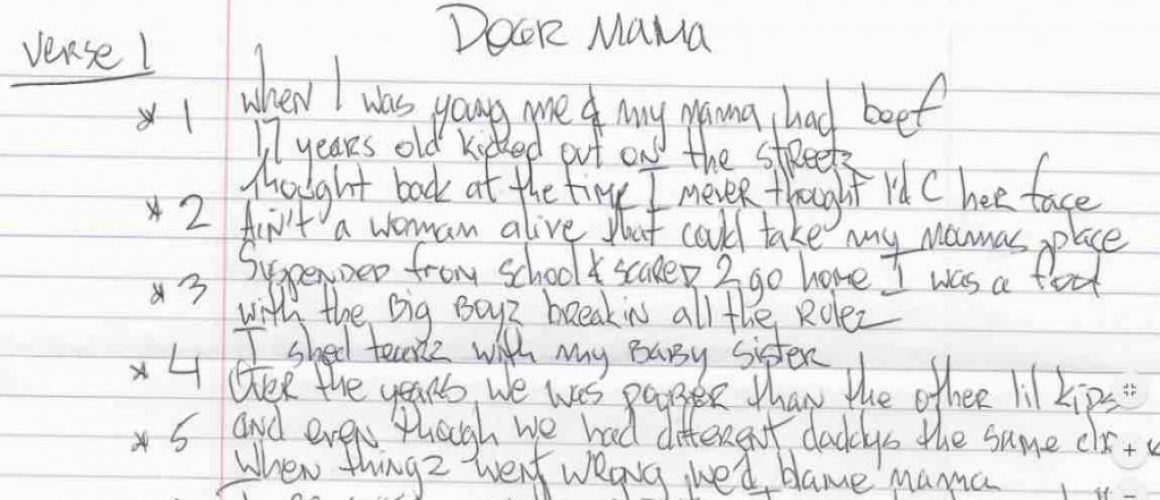 Dear Mama
Verse 1
* 1 When I was young me & my mama had beef
17 years old kicked out on the streetz
* 2 thought back at the time I never thought I'd C her face
Ain't a woman alive that could take my mamas place
* 3 Suspended from school & scared 2 go home I was a fool
with the Big Boyz breakin all the Rulez
* 4 I shed tearz with my Baby Sister
Over the years we was poorer than the other lil kids
* 5 and even though we had different daddys the same
When thingz went wrong we'd blame mama